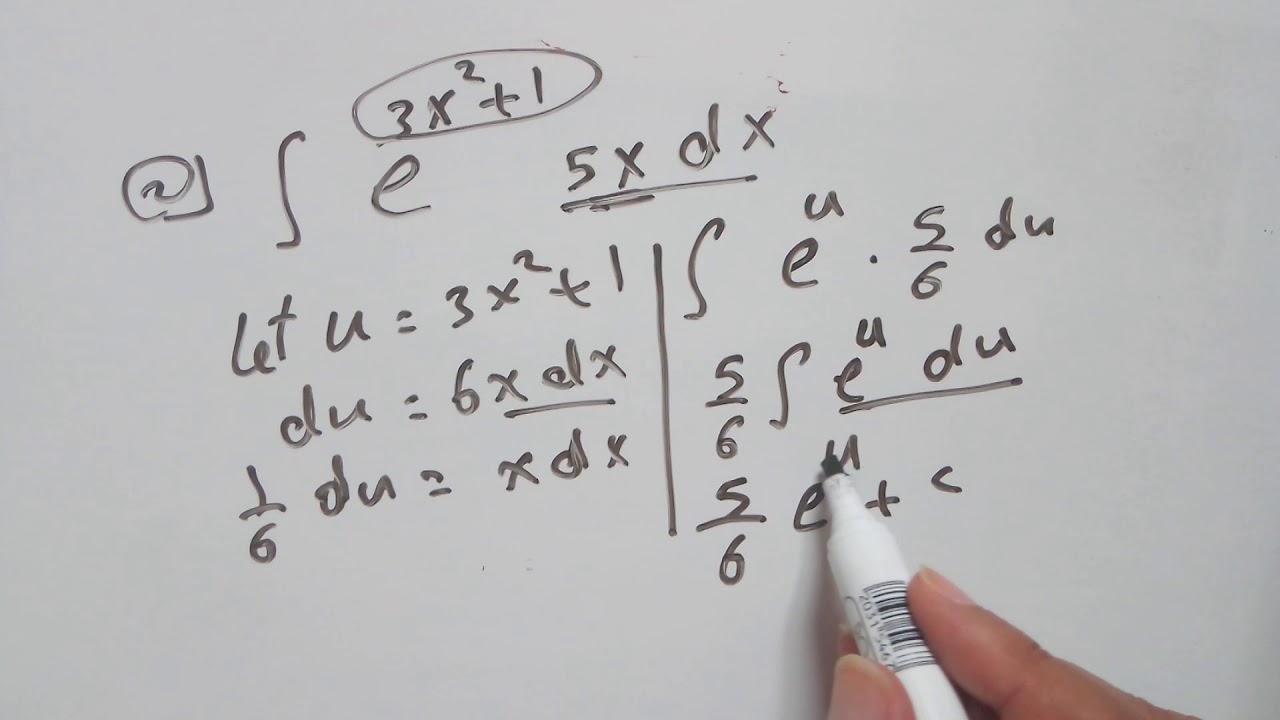 2] ∫ e^(3x²+1) 5x dx
let u = 3x²+1
du = 6x dx
1/6 du = x dx
∫ e^u · 5/6 du
5/6 ∫ e^u du
5/6 e^u + c